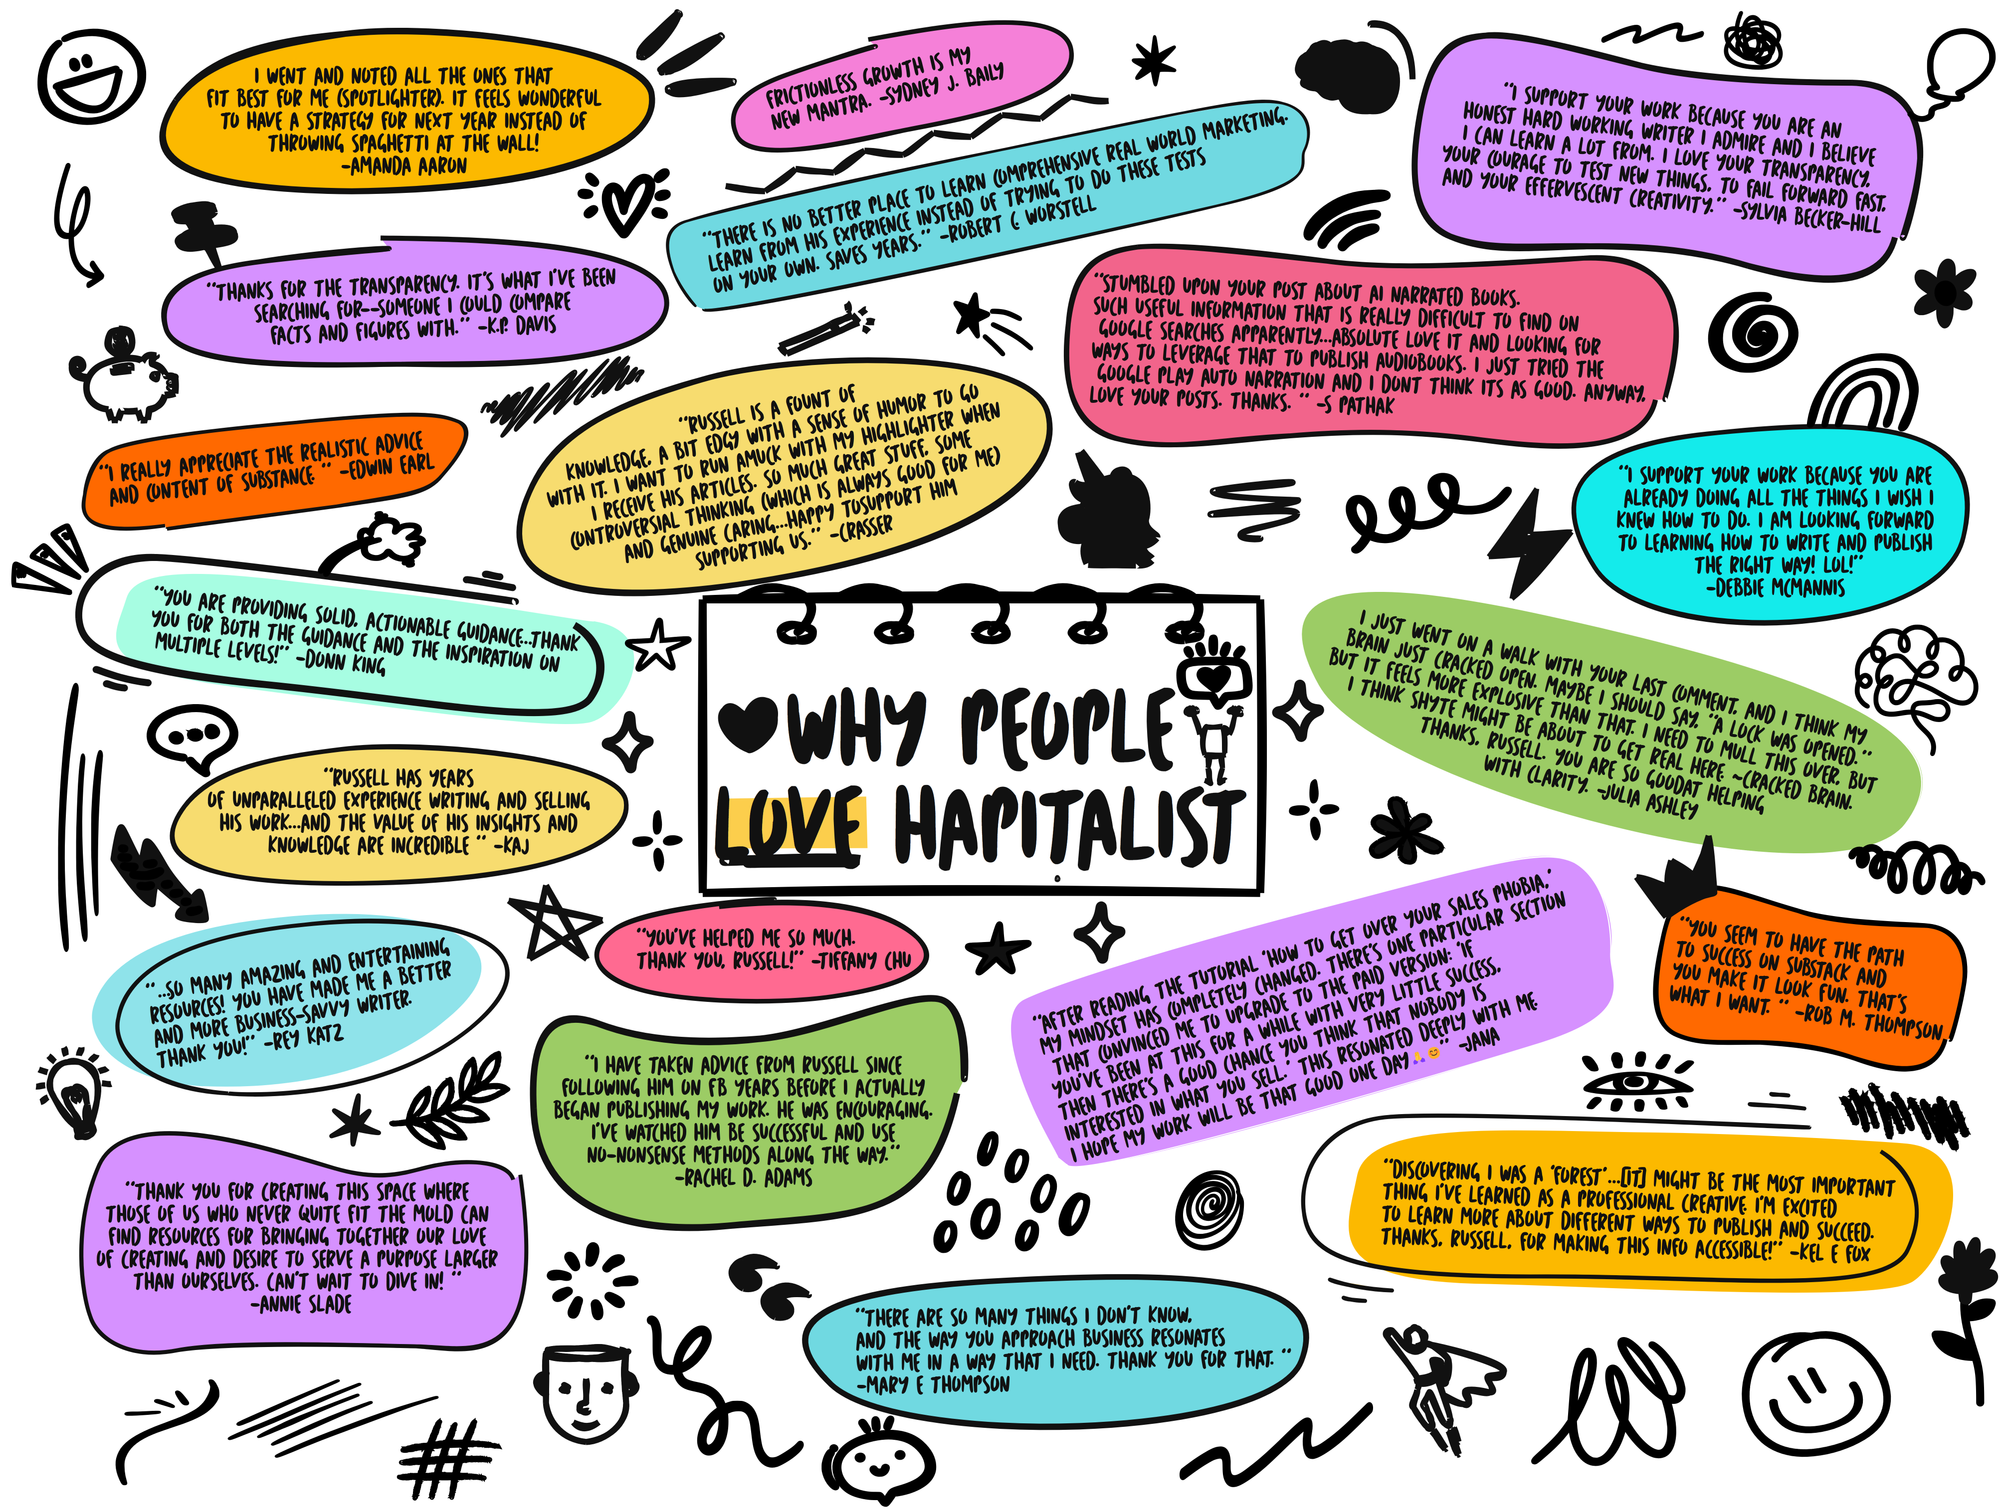 I WENT AND NOTED ALL THE ONES THAT
FIT BEST FOR ME (SPOTLIGHTER). IT FEELS WONDERFUL
TO HAVE A STRATEGY FOR NEXT YEAR INSTEAD OF
THROWING SPAGHETTI AT THE WALL!
-AMANDA AARON
FRICTIONLESS GROWTH IS MY
NEW MANTRA. -SYDNEY J. BAILY
"THERE IS NO BETTER PLACE TO LEARN COMPREHENSIVE REAL WORLD MARKETING.
LEARN FROM HIS EXPERIENCE INSTEAD OF TRYING TO DO THESE TESTS
ON YOUR OWN. SAVES YEARS." -ROBERT C. WORSTELL
"I SUPPORT YOUR WORK BECAUSE YOU ARE AN
HONEST HARD WORKING WRITER I ADMIRE AND I BELIEVE
I CAN LEARN A LOT FROM. I LOVE YOUR TRANSPARENCY,
YOUR COURAGE TO TEST NEW THINGS, TO FAIL FORWARD FAST,
AND YOUR EFFERVESCENT CREATIVITY." -SYLVIA BECKER-HILL
"THANKS FOR THE TRANSPARENCY. IT'S WHAT I'VE BEEN
SEARCHING FOR--SOMEONE I COULD COMPARE
FACTS AND FIGURES WITH." -K.P. DAVIS
"STUMBLED UPON YOUR POST ABOUT AI NARRATED BOOKS.
SUCH USEFUL INFORMATION THAT IS REALLY DIFFICULT TO FIND ON
GOOGLE SEARCHES APPARENTLY...ABSOLUTE LOVE IT AND LOOKING FOR
WAYS TO LEVERAGE THAT TO PUBLISH AUDIOBOOKS. I JUST TRIED THE
GOOGLE PLAY AUTO NARRATION AND I DONT THINK ITS AS GOOD. ANYWAY,
LOVE YOUR POSTS. THANKS. " -S PATHAK
"I REALLY APPRECIATE THE REALISTIC ADVICE
AND CONTENT OF SUBSTANCE " -EDWIN EARL
"RUSSELL IS A FOUNT OF
KNOWLEDGE, A BIT EDGY WITH A SENSE OF HUMOR TO GO
WITH IT. I WANT TO RUN AMUCK WITH MY HIGHLIGHTER WHEN
I RECEIVE HIS ARTICLES. SO MUCH GREAT STUFF, SOME
CONTROVERSIAL THINKING (WHICH IS ALWAYS GOOD FOR ME)
AND GENUINE CARING...HAPPY TOSUPPORT HIM
SUPPORTING US." -CRASSER
"I SUPPORT YOUR WORK BECAUSE YOU ARE
ALREADY DOING ALL THE THINGS I WISH I
KNEW HOW TO DO. I AM LOOKING FORWARD
TO LEARNING HOW TO WRITE AND PUBLISH
THE RIGHT WAY! LOL!"
-DEBBIE MCMANNIS
"YOU ARE PROVIDING SOLID, ACTIONABLE GUIDANCE...THANK
YOU FOR BOTH THE GUIDANCE AND THE INSPIRATION ON
MULTIPLE LEVELS!" -DONN KING
WHY PEOPLE
LOVE HAPITALIST
I JUST WENT ON A WALK WITH YOUR LAST COMMENT, AND I THINK MY
BRAIN JUST CRACKED OPEN. MAYBE I SHOULD SAY, "A LOCK WAS OPENED."
BUT IT FEELS MORE EXPLOSIVE THAN THAT. I NEED TO MULL THIS OVER, BUT
I THINK SHYTE MIGHT BE ABOUT TO GET REAL HERE ~CRACKED BRAIN.
THANKS, RUSSELL. YOU ARE SO GOODAT HELPING
WITH CLARITY. -JULIA ASHLEY
"RUSSELL HAS YEARS
OF UNPARALLELED EXPERIENCE WRITING AND SELLING
HIS WORK...AND THE VALUE OF HIS INSIGHTS AND
KNOWLEDGE ARE INCREDIBLE " -KAJ
"...SO MANY AMAZING AND ENTERTAINING
RESOURCES! YOU HAVE MADE ME A BETTER
AND MORE BUSINESS-SAVVY WRITER.
THANK YOU!" -REY KATZ
"YOU'VE HELPED ME SO MUCH.
THANK YOU, RUSSELL!" -TIFFANY CHU
"AFTER READING THE TUTORIAL 'HOW TO GET OVER YOUR SALES PHOBIA,'
MY MINDSET HAS COMPLETELY CHANGED. THERE'S ONE PARTICULAR SECTION
THAT CONVINCED ME TO UPGRADE TO THE PAID VERSION: 'IF
YOU'VE BEEN AT THIS FOR A WHILE WITH VERY LITTLE SUCCESS,
THEN THERE'S A GOOD CHANCE YOU THINK THAT NOBODY IS
INTERESTED IN WHAT YOU SELL.' THIS RESONATED DEEPLY WITH ME
I HOPE MY WORK WILL BE THAT GOOD ONE DAY🙏😊" -JANA
"YOU SEEM TO HAVE THE PATH
TO SUCCESS ON SUBSTACK AND
YOU MAKE IT LOOK FUN. THAT'S
WHAT I WANT. " -ROB M. THOMPSON
"I HAVE TAKEN ADVICE FROM RUSSELL SINCE
FOLLOWING HIM ON FB YEARS BEFORE I ACTUALLY
BEGAN PUBLISHING MY WORK. HE WAS ENCOURAGING.
I'VE WATCHED HIM BE SUCCESSFUL AND USE
NO-NONSENSE METHODS ALONG THE WAY."
-RACHEL D. ADAMS
"THANK YOU FOR CREATING THIS SPACE WHERE
THOSE OF US WHO NEVER QUITE FIT THE MOLD CAN
FIND RESOURCES FOR BRINGING TOGETHER OUR LOVE
OF CREATING AND DESIRE TO SERVE A PURPOSE LARGER
THAN OURSELVES. CAN'T WAIT TO DIVE IN! "
-ANNIE SLADE
"DISCOVERING I WAS A 'FOREST'...[IT] MIGHT BE THE MOST IMPORTANT
THING I'VE LEARNED AS A PROFESSIONAL CREATIVE. I'M EXCITED
TO LEARN MORE ABOUT DIFFERENT WAYS TO PUBLISH AND SUCCEED.
THANKS, RUSSELL, FOR MAKING THIS INFO ACCESSIBLE!" -KEL E FOX
"THERE ARE SO MANY THINGS I DON'T KNOW,
AND THE WAY YOU APPROACH BUSINESS RESONATES
WITH ME IN A WAY THAT I NEED. THANK YOU FOR THAT. "
-MARY E THOMPSON